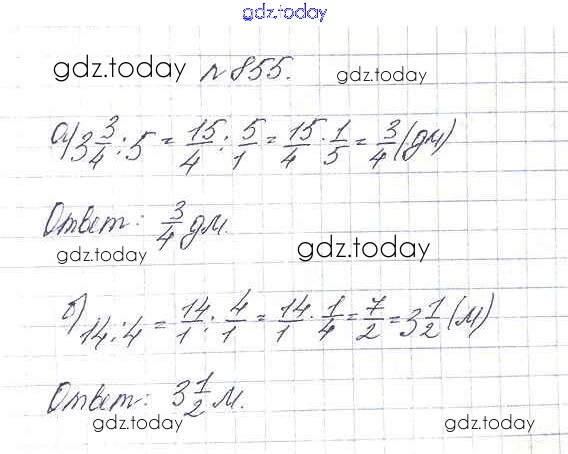 gdz.today
gdz.today №855. gdz.today
а) 3 3/4 : 5 = 15/4 : 5/1 = 15/4 · 1/5 = 3/4 (дм)
Ответ: 3/4 дм.
gdz.today gdz.today
б) 14 : 4 = 14/1 : 4/1 = 14/1 · 1/4 = 7/2 = 3 1/2 (м)
Ответ: 3 1/2 м.
gdz.today gdz.today